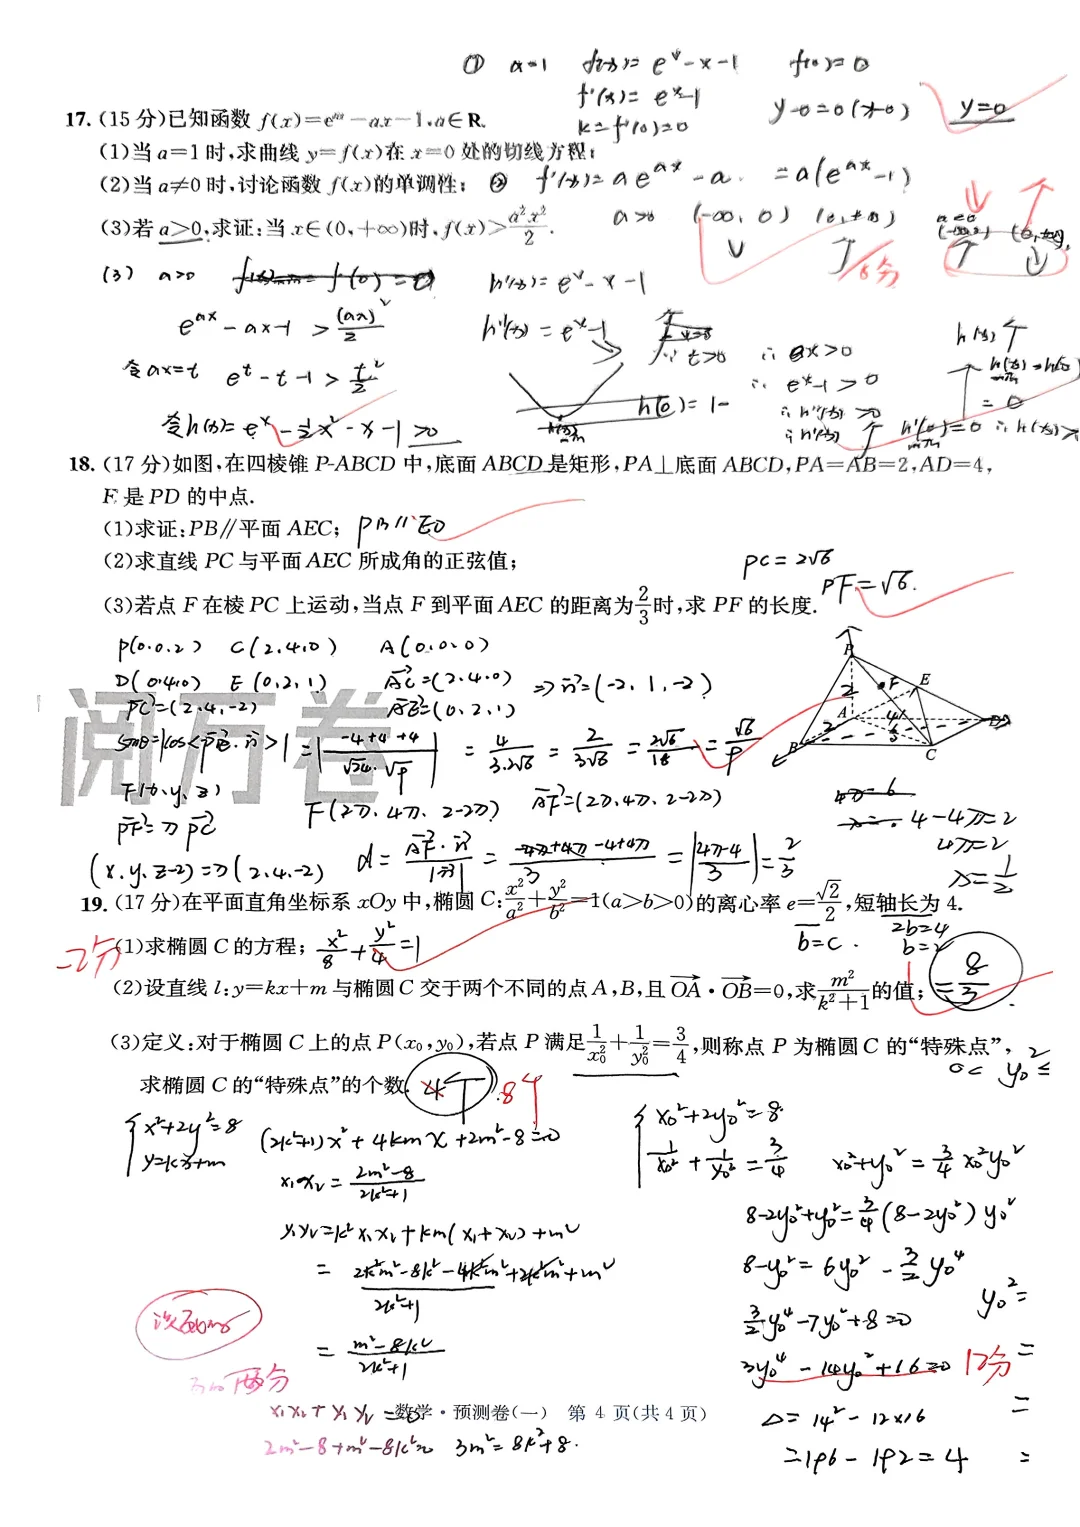 ① a=1 f(x)=eˣ-x-1 f(0)=0
f'(x)=eˣ-1
k=f'(0)=0
y-0=0(x-0) y=0
17.(15分)已知函数 f(x)=eᵃˣ-ax-1,a∈R.
(1)当a=1时,求曲线 y=f(x)在 x=0 处的切线方程;
(2)当a≠0时,讨论函数 f(x)的单调性; ② f'(x)=aeᵃˣ-a =a(eᵃˣ-1)
a>0 (-∞,0) (0,+∞)
(3)若 a>0,求证:当 x∈(0,+∞)时,f(x)>a²x²/2.
8分
(3) a>0
eᵃˣ-ax-1>(ax)²/2
令ax=t eᵗ-t-1>t²/2
令h(x)=eˣ-½x²-x-1>0
h'(x)=eˣ-x-1
h''(x)=eˣ-1
∵t>0 ∴ax>0
∴eˣ-1>0
18.(17分)如图,在四棱锥 P-ABCD 中,底面 ABCD 是矩形,PA⊥底面 ABCD,PA=AB=2,AD=4,
E 是 PD 的中点.
(1)求证:PB∥平面 AEC; PB∥EO
(2)求直线 PC 与平面 AEC 所成角的正弦值;
PC=2√6
PF=√6.
(3)若点 F 在棱 PC 上运动,当点 F 到平面 AEC 的距离为2/3时,求 PF 的长度.
P(0,0,2) C(2,4,0) A(0,0,0)
D(0,4,0) E(0,2,1) AC=(2,4,0) ⇒n=(-2,1,-2)
PC=(2,4,-2) AE=(0,2,1)
P
F
E
A
D
B
C
F(x,y,z) F(2λ,4λ,2-2λ) AF=(2λ,4λ,2-2λ)
PF=λPC
(x,y,z-2)=λ(2,4,-2)
|4λ-4/3|=2/3
4-4λ=2
4λ=2
λ=1/2
19.(17分)在平面直角坐标系 xOy 中,椭圆 C:x²/a²+y²/b²=1(a>b>0)的离心率 e=√2/2,短轴长为 4.
b=c. 2b=4
b=2
-2分
(1)求椭圆 C 的方程; x²/8+y²/4=1
(2)设直线 l:y=kx+m 与椭圆 C 交于两个不同的点 A,B,且OA·OB=0,求m²/(k²+1)的值; =8/3
(3)定义:对于椭圆 C 上的点 P(x₀,y₀),若点 P 满足1/x₀²+1/y₀²=3/4,则称点 P 为椭圆 C 的“特殊点”,
求椭圆 C 的“特殊点”的个数. 4个 8个
{x²+2y²=8
y=kx+m
(2k²+1)x²+4kmx+2m²-8=0
x₁x₂=(2m²-8)/(2k²+1)
y₁y₂=k²x₁x₂+km(x₁+x₂)+m²
=(2k²m²-8k²-4k²m²+2k²m²+m²)/(2k²+1)
=(m²-8k²)/(2k²+1)
两分
x₁x₂+y₁y₂=0
2m²-8+m²-8k²=0 3m²=8k²+8.
{x₀²+2y₀²=8
1/x₀²+1/y₀²=3/4 x₀²+y₀²=¾x₀²y₀²
8-2y₀²+y₀²=¾(8-2y₀²)y₀²
8-y₀²=6y₀²-3/2 y₀⁴
y₀²=
3/2 y₀⁴-7y₀²+8=0
3y₀⁴-14y₀²+16=0 12分
Δ=14²-12×16
=196-192=4
数学·预测卷(一) 第 4 页(共 4 页)
阅万卷